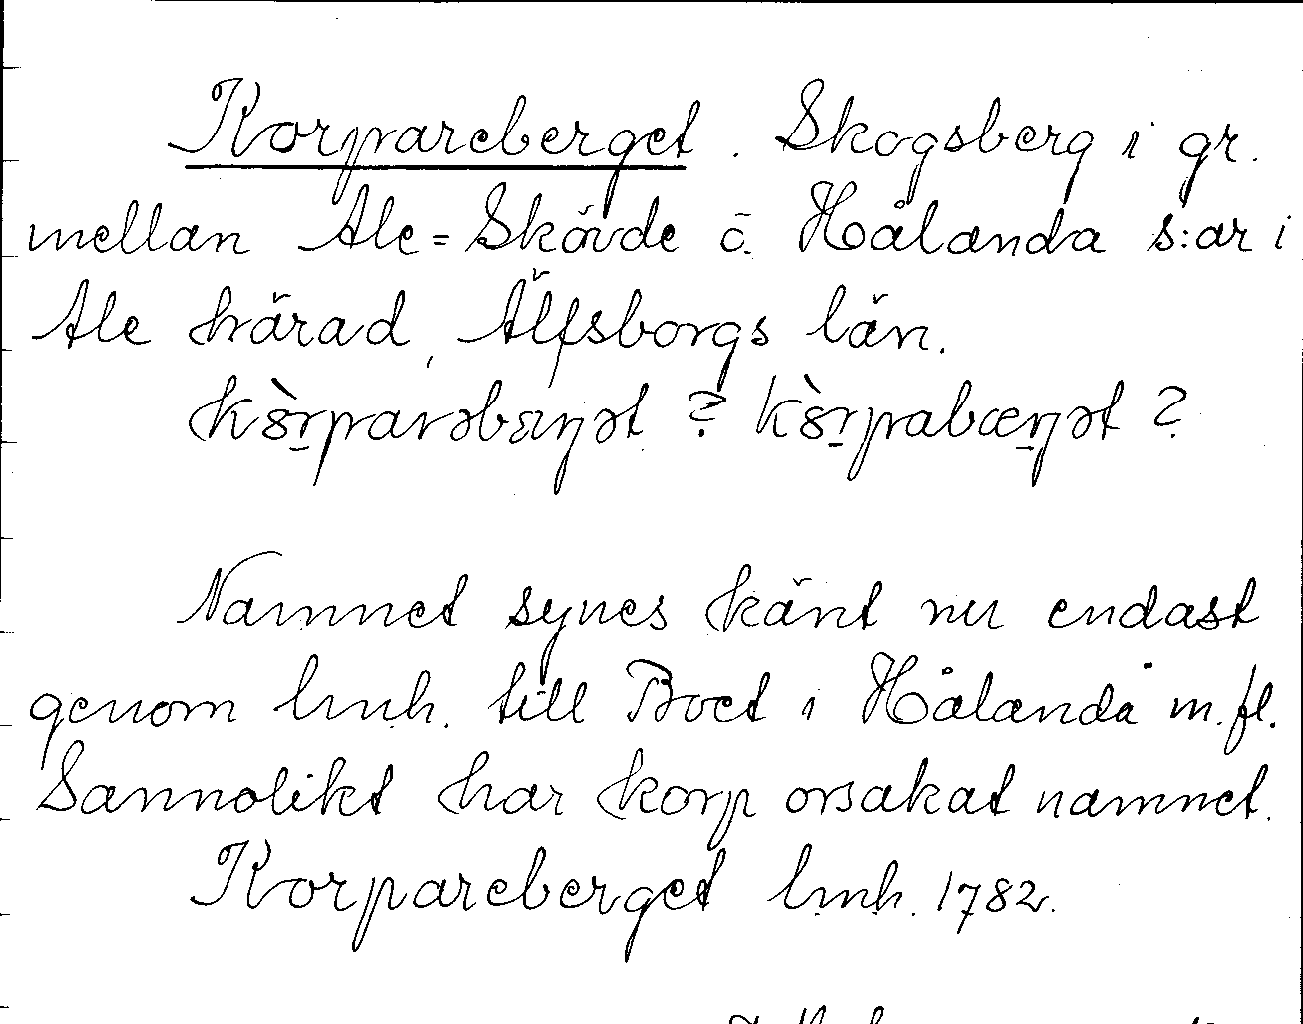 Korpareberget. Skogsberg i gr.
mellan Ale=Skövde o. Hålanda s:ar i
Ale härad, Älfsborgs län.
kòrparəbæŋət? kòrpabæŋət?
Namnet synes känt nu endast
genom lmh. till Boet i Hålanda m.fl.
Sannolikt har korp orsakat namnet.
Korpareberget lmh. 1782.